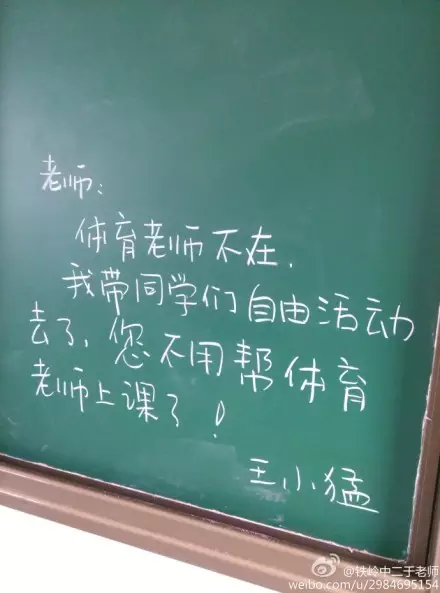 老师：
体育老师不在.
我带同学们自由活动
去了，您不用帮体育
老师上课了！
王小猛
@铁岭中二于老师
weibo.com/u/2984695154